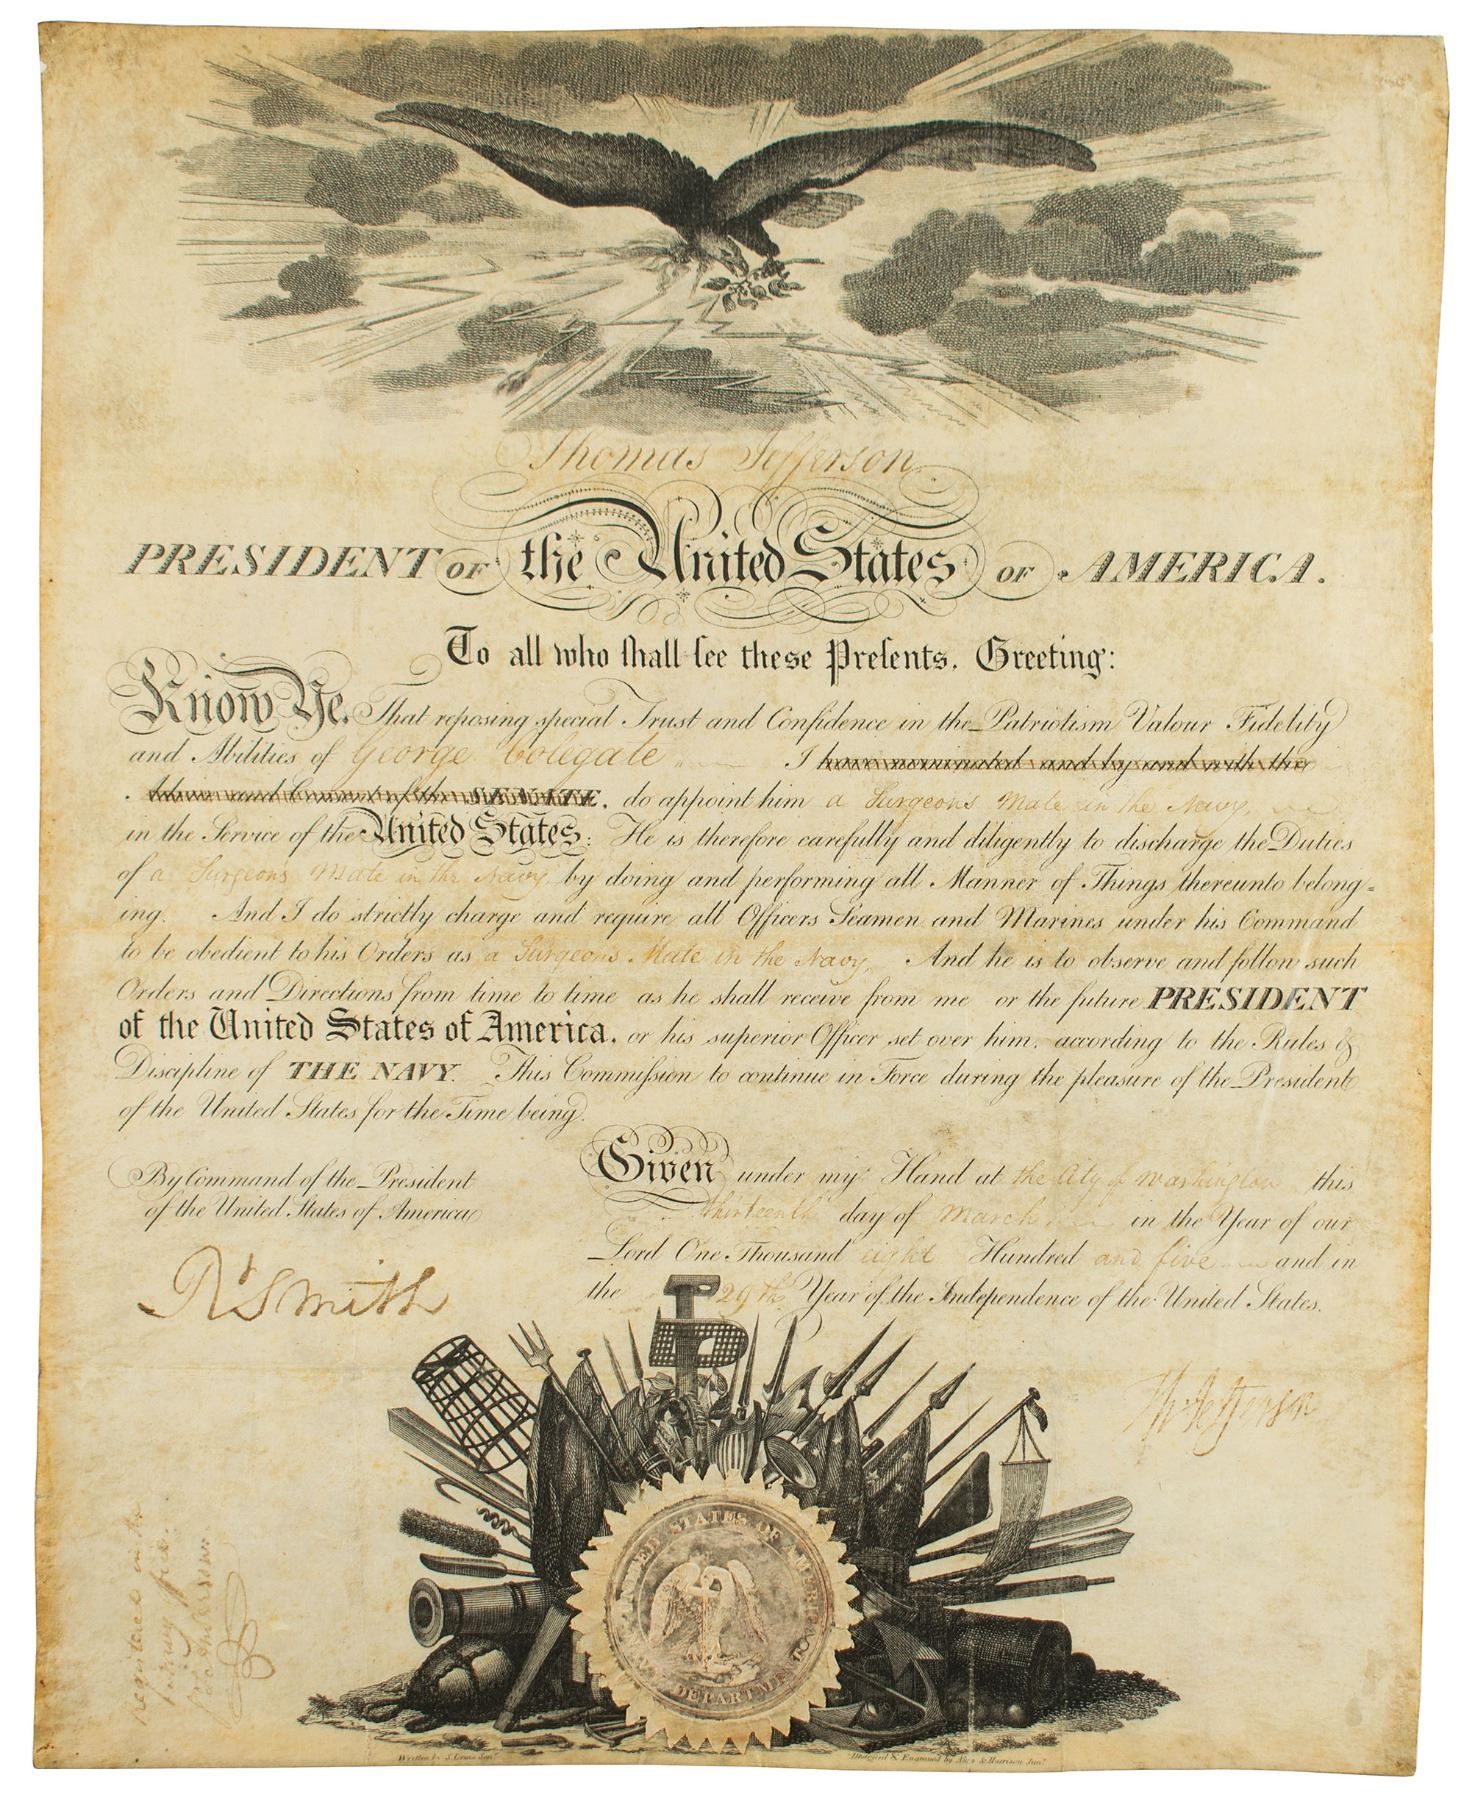 Thomas Jefferson
PRESIDENT OF the United States OF AMERICA.
To all who ſhall ſee these Preſents, Greeting:
Know Ye, That reposing special Trust and Confidence in the Patriotism Valour Fidelity
and Abilities of George Colegate I have nominated and by and with the
Advice and Consent of the SENATE, do appoint him a Surgeons Mate in the Navy,
in the Service of the United States: He is therefore carefully and diligently to discharge the Duties
of a Surgeons Mate in the Navy by doing and performing all Manner of Things thereunto belong=
ing. And I do strictly charge and require all Officers Seamen and Marines under his Command
to be obedient to his Orders as a Surgeons Mate in the Navy, And he is to observe and follow such
Orders and Directions from time to time as he shall receive from me or the future PRESIDENT
of the United States of America, or his superior Officer set over him, according to the Rules &
Discipline of THE NAVY. This Commiſsion to continue in Force during the pleasure of the President
of the United States for the Time being.
By Command of the President
of the United States of America
Rt Smith
Given under my Hand at the City of Washington this
thirteenth day of March in the Year of our
Lord One Thousand eight Hundred and five and in
the 29th Year of the Independence of the United States.
Th Jefferson
UNITED STATES OF AMERICA
NAVY DEPARTMENT
Registered in the